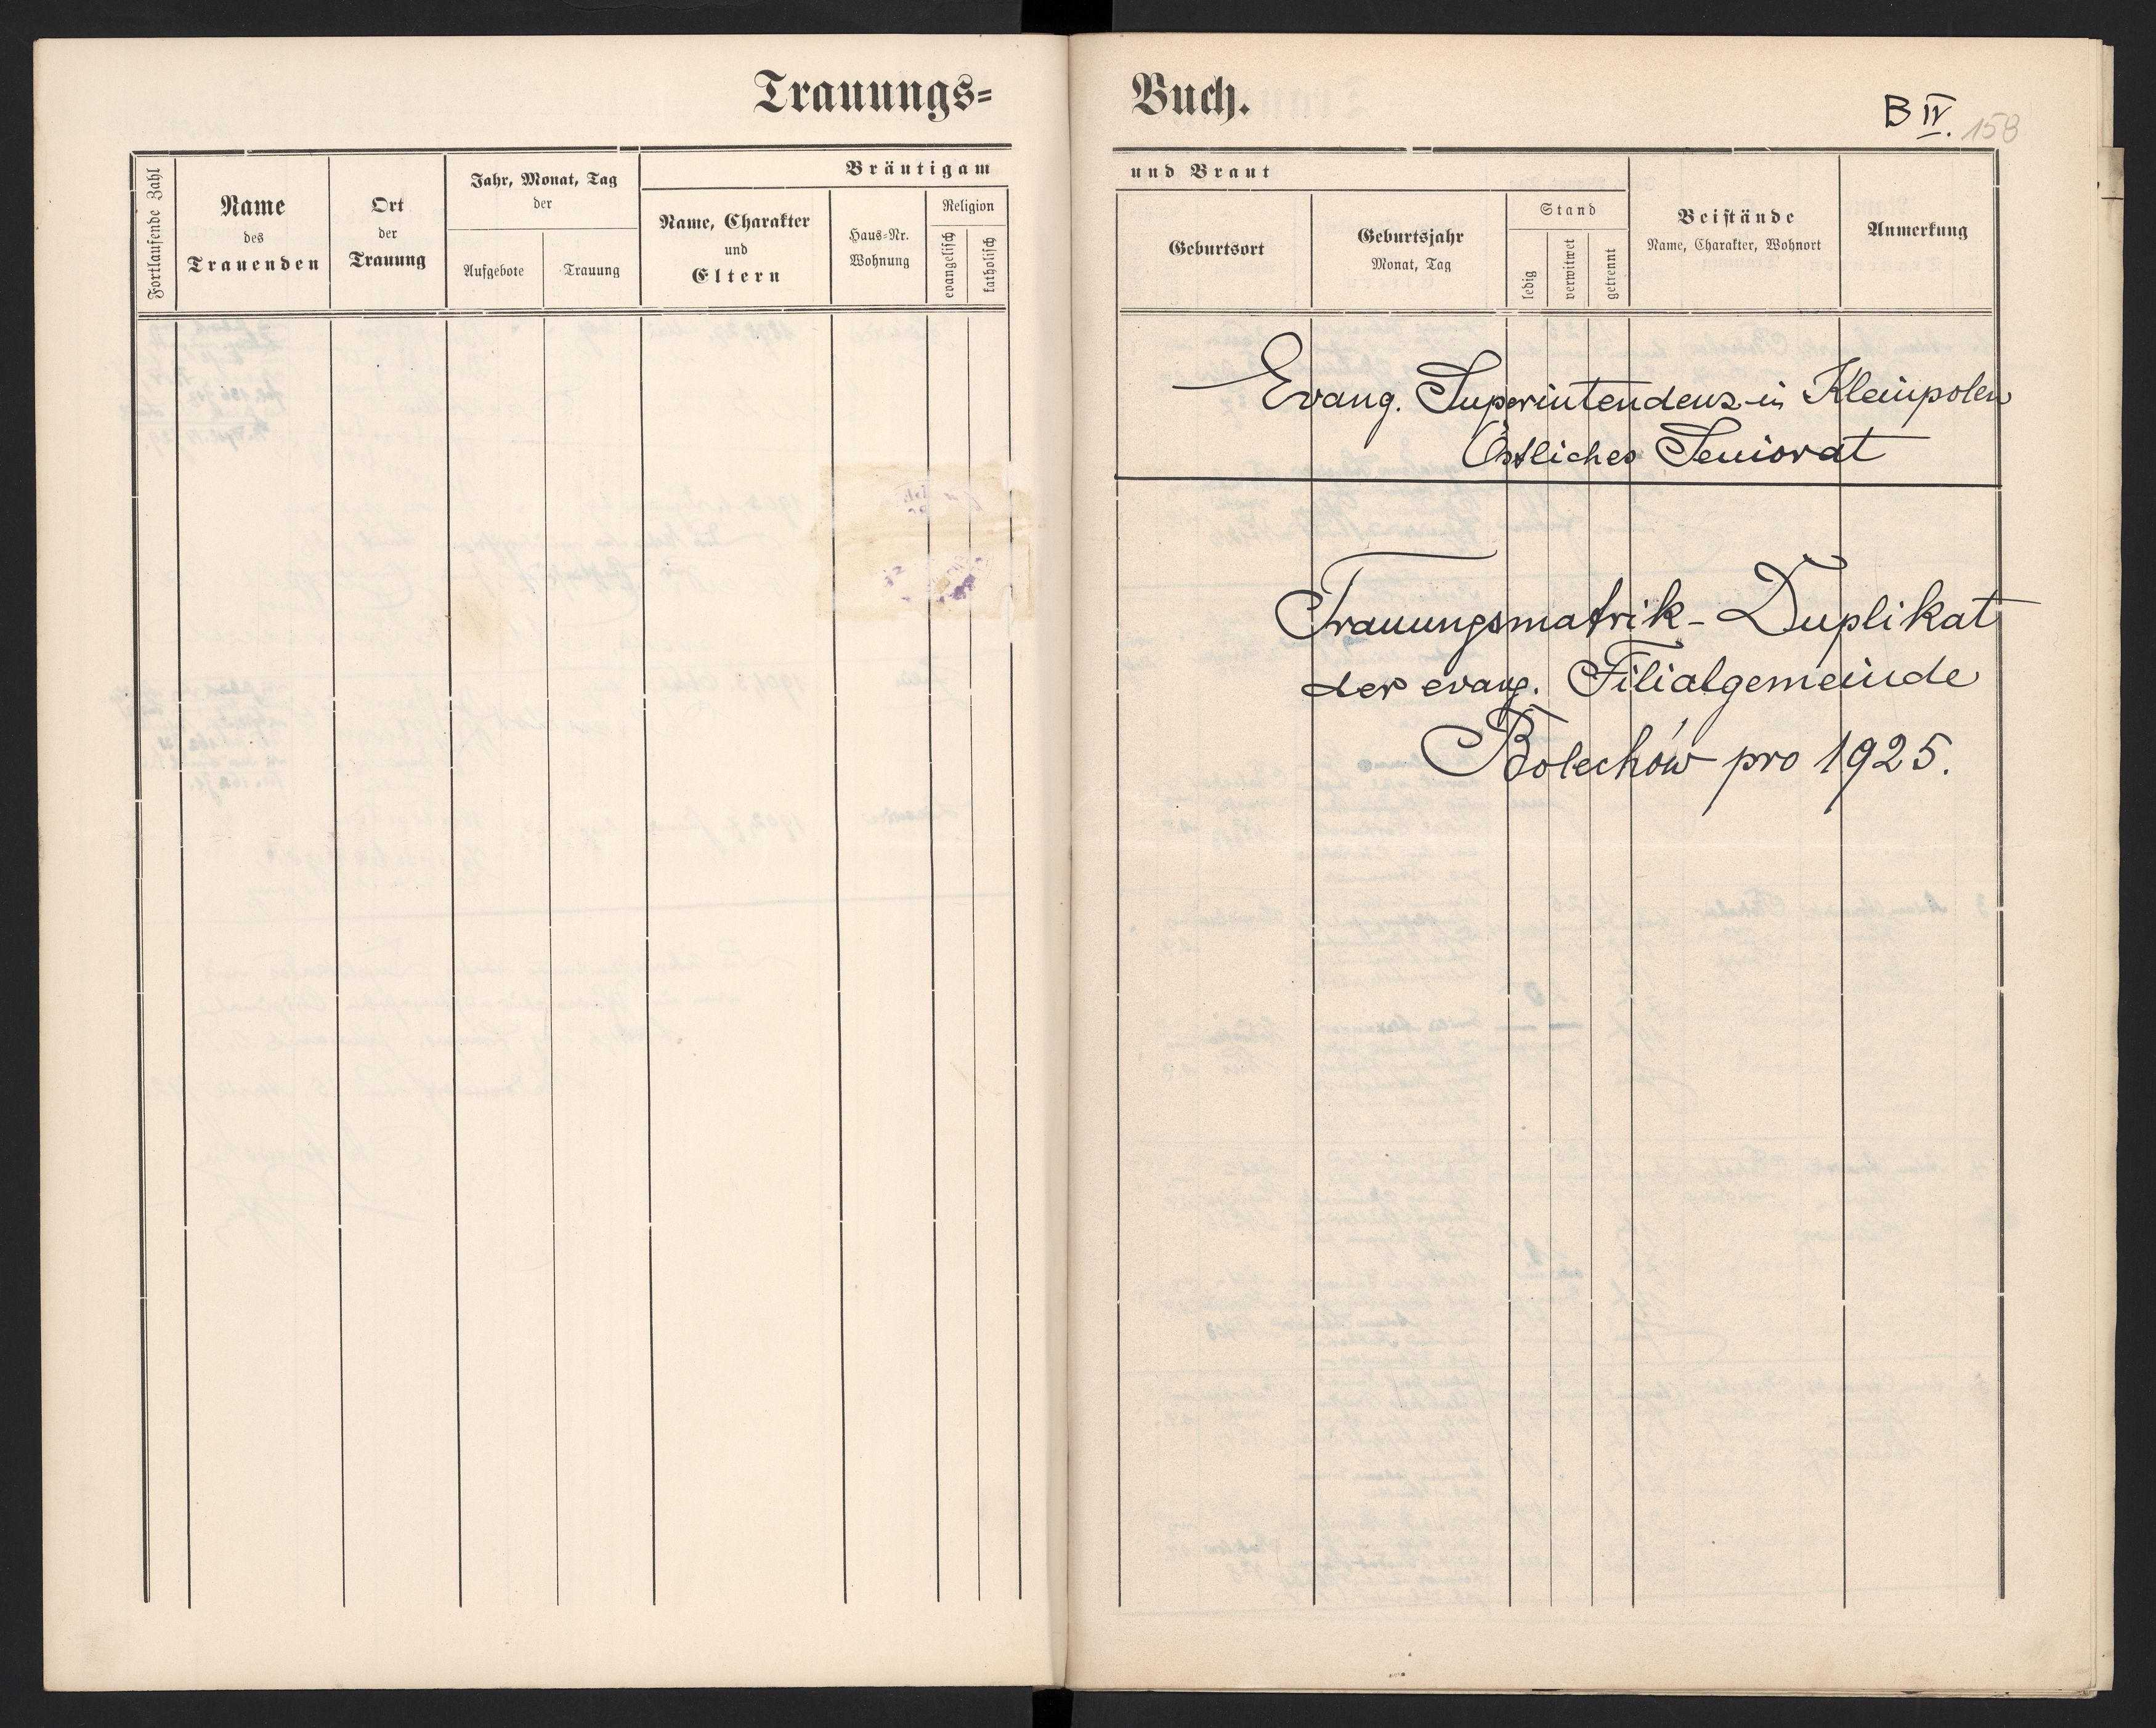 Trauungs=
Fortlaufende Zahl
Name
des
Trauenden
Ort
der
Trauung
Jahr, Monat, Tag
der
Aufgebote
Trauung
Bräutigam
Name, Charakter
und
Eltern
Haus=Nr.
Wohnung
Religion
evangelisch
katholisch
Buch.
B IV. 158
und Braut
Geburtsort
Geburtsjahr
Monat, Tag
Stand
ledig
verwitwet
getrennt
Beistände
Name, Charakter, Wohnort
Anmerkung
Evang. Superintendenz in Kleinpolen
Östliches Seniorat
Trauungsmatrik-Duplikat
der evang. Filialgemeinde
Bolechów pro 1925.